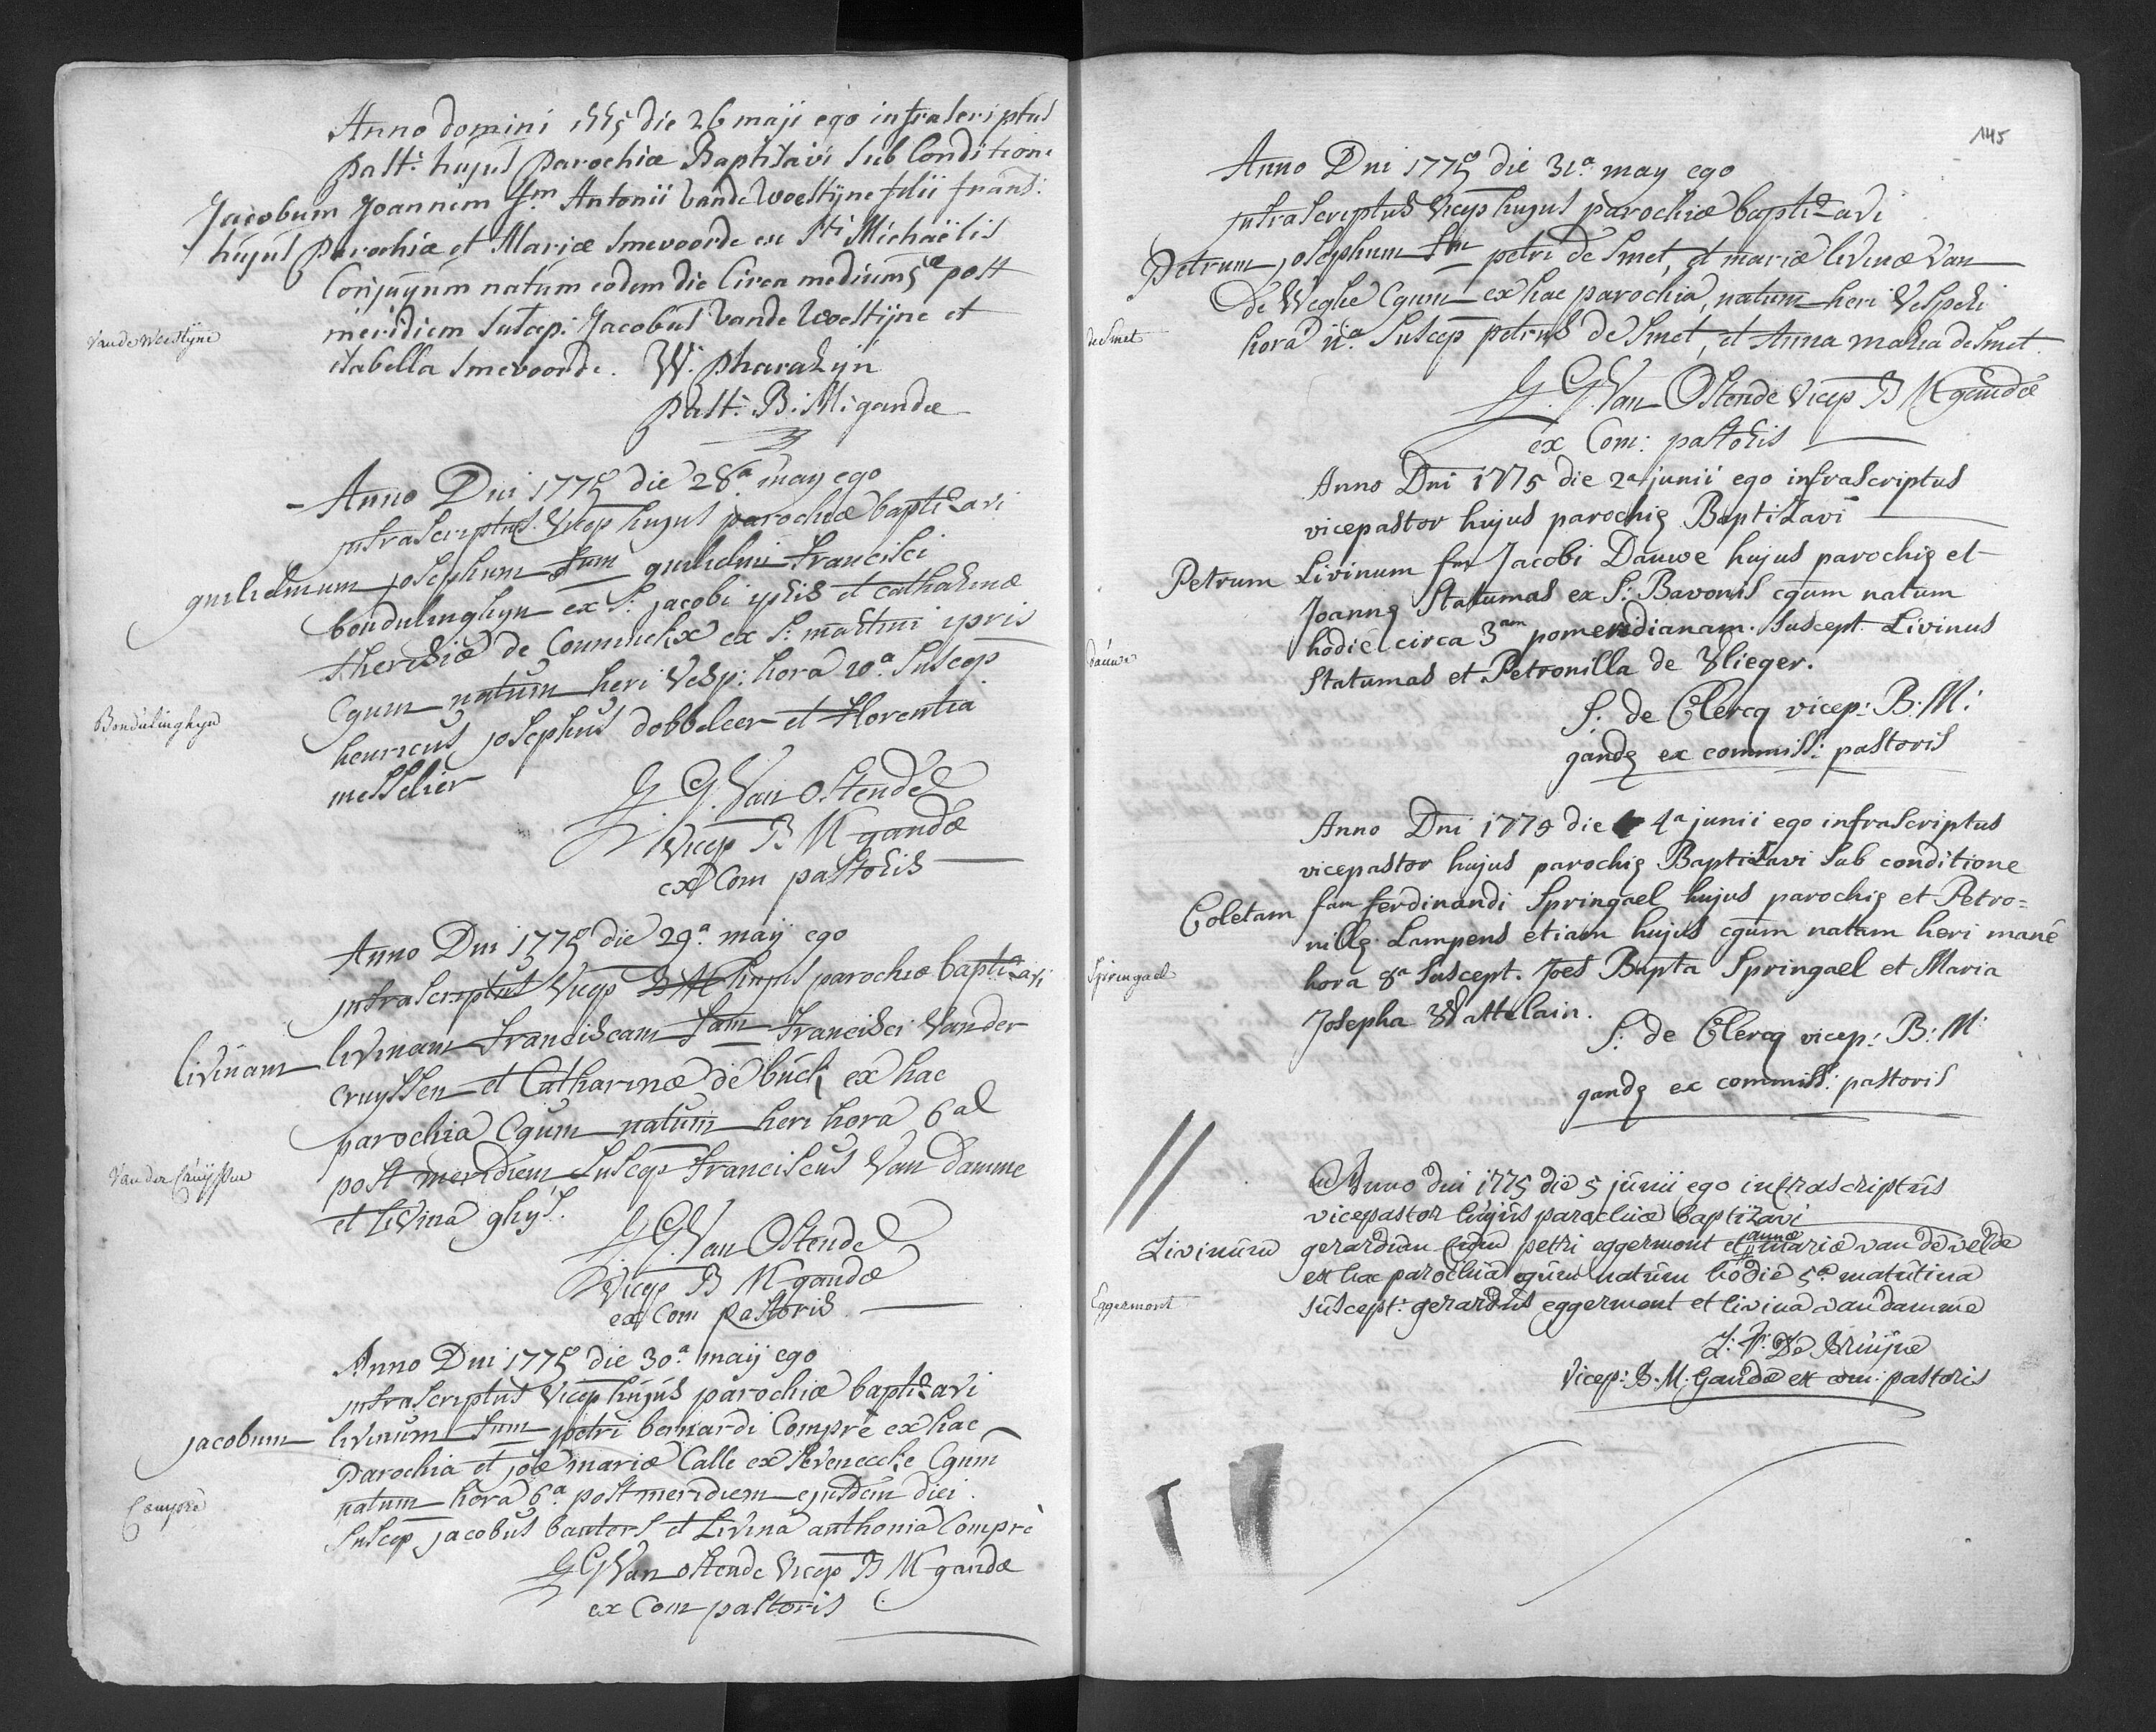 Anno domini 1775 die 26 maji ego infrascriptus
past: hujus parochiæ Baptizavi sub Conditione
Jacobum Joannem f.m Antonii vande Woestijne filii frans:
hujus Parochiæ et Mariæ Smevoorde ex Sti Michaëlis
Conjugum natum eodem die Circa medium 5æ post
meridiem suscep: Jacobus vande Woestijne et
Vande Woestijne
isabella Smevoorde. W: Pharazijn
past: B: M: gandæ
Anno Dni 1775 die 28a may ego
infrascriptus vicep hujus parochiæ baptizavi
guilielmum josephum fum guilielmi francisci
bondulinghyn ex S: jacobi ipris et catharinæ
theresiæ de Connincks ex S: martini ipris
Cgum natum heri vesp: hora 10a suscep
Bondulinghyn
henricus josephus dobbeleer et florentia
messelier
G. G. Van Ostende
vicep B M gandæ
ex Com pastoris
Anno Dni 1775 die 29a maij ego
infrascriptus vicep B M hujus parochiæ baptizavi
livinam livinam franciscam fam francisci Vander
cruyssen et Catharinæ de buck ex hac
parochia Cgum natum heri hora 6a
post meridiem suscep franciscus Van damme
Van der Cruyssen
et livina ghys.
G. G. Van Ostende
vicep B M gandæ
ex Com pastoris
Anno Dni 1775 die 30a maij ego
infrascriptus vicep hujus parochiæ baptizavi
jacobum livinum fum petri bernardi Comprè ex hac
parochia et joæ mariæ Calle ex seveneecke Cgum
natum hora 6a post meridiem ejusdem diei
Comprè
suscep jacobus bauters et Livina anthonia Comprè
G G Van Ostende vicep B M gandæ
ex Com pastoris
145
Anno Dni 1775 die 31a may ego
infrascriptus vicep hujus parochiæ baptizavi
Petrum josephum fum petri de Smet, et mariæ livinæ Van
de Weghe Cgum ex hac parochia, natum heri vesperi
de Smet
hora 11a suscep petrus de Smet, et Anna maria de Smet.
G. G. Van Ostende vicep B M gandæ
ex Com: pastoris
Anno Dni 1775 die 2a junii ego infrascriptus
vicepastor hujus parochię Baptizavi
Petrum Livinum fm Jacobi Dauwe hujus parochię et
Joannę Statumas ex S: Bavonis cgum natum
hodie circa 3am pomeridianam. suscept. Livinus
Dauwe
Statumas et Petronilla de Vlieger.
S: de Clercq vicep: B: M:
gandę ex commiss: pastoris
Anno Dni 1775 die 4a junii ego infrascriptus
vicepastor hujus parochię Baptizavi sub conditione
Coletam fam ferdinandi Springael hujus parochię et Petro=
nillę Lampens etiam hujus cgum natam heri manè
Springael
hora 8a suscept. Joes Bapta Springael et Maria
Josepha Wattelain.
S: de Clercq vicep: B: M:
gandę ex commiss: pastoris
Anno dni 1775 die 5 junii ego infrascriptus
vicepastor hujus parochiæ baptizavi
Livinum gerardum fium petri eggermont et annæ mariæ van de velde
ex hac parochia cgum natum hodie 5a matutina
Eggermont
suscept: gerardus eggermont et livina van damme
De Bruijne
vicep: B. M. Gandæ ex com: pastoris